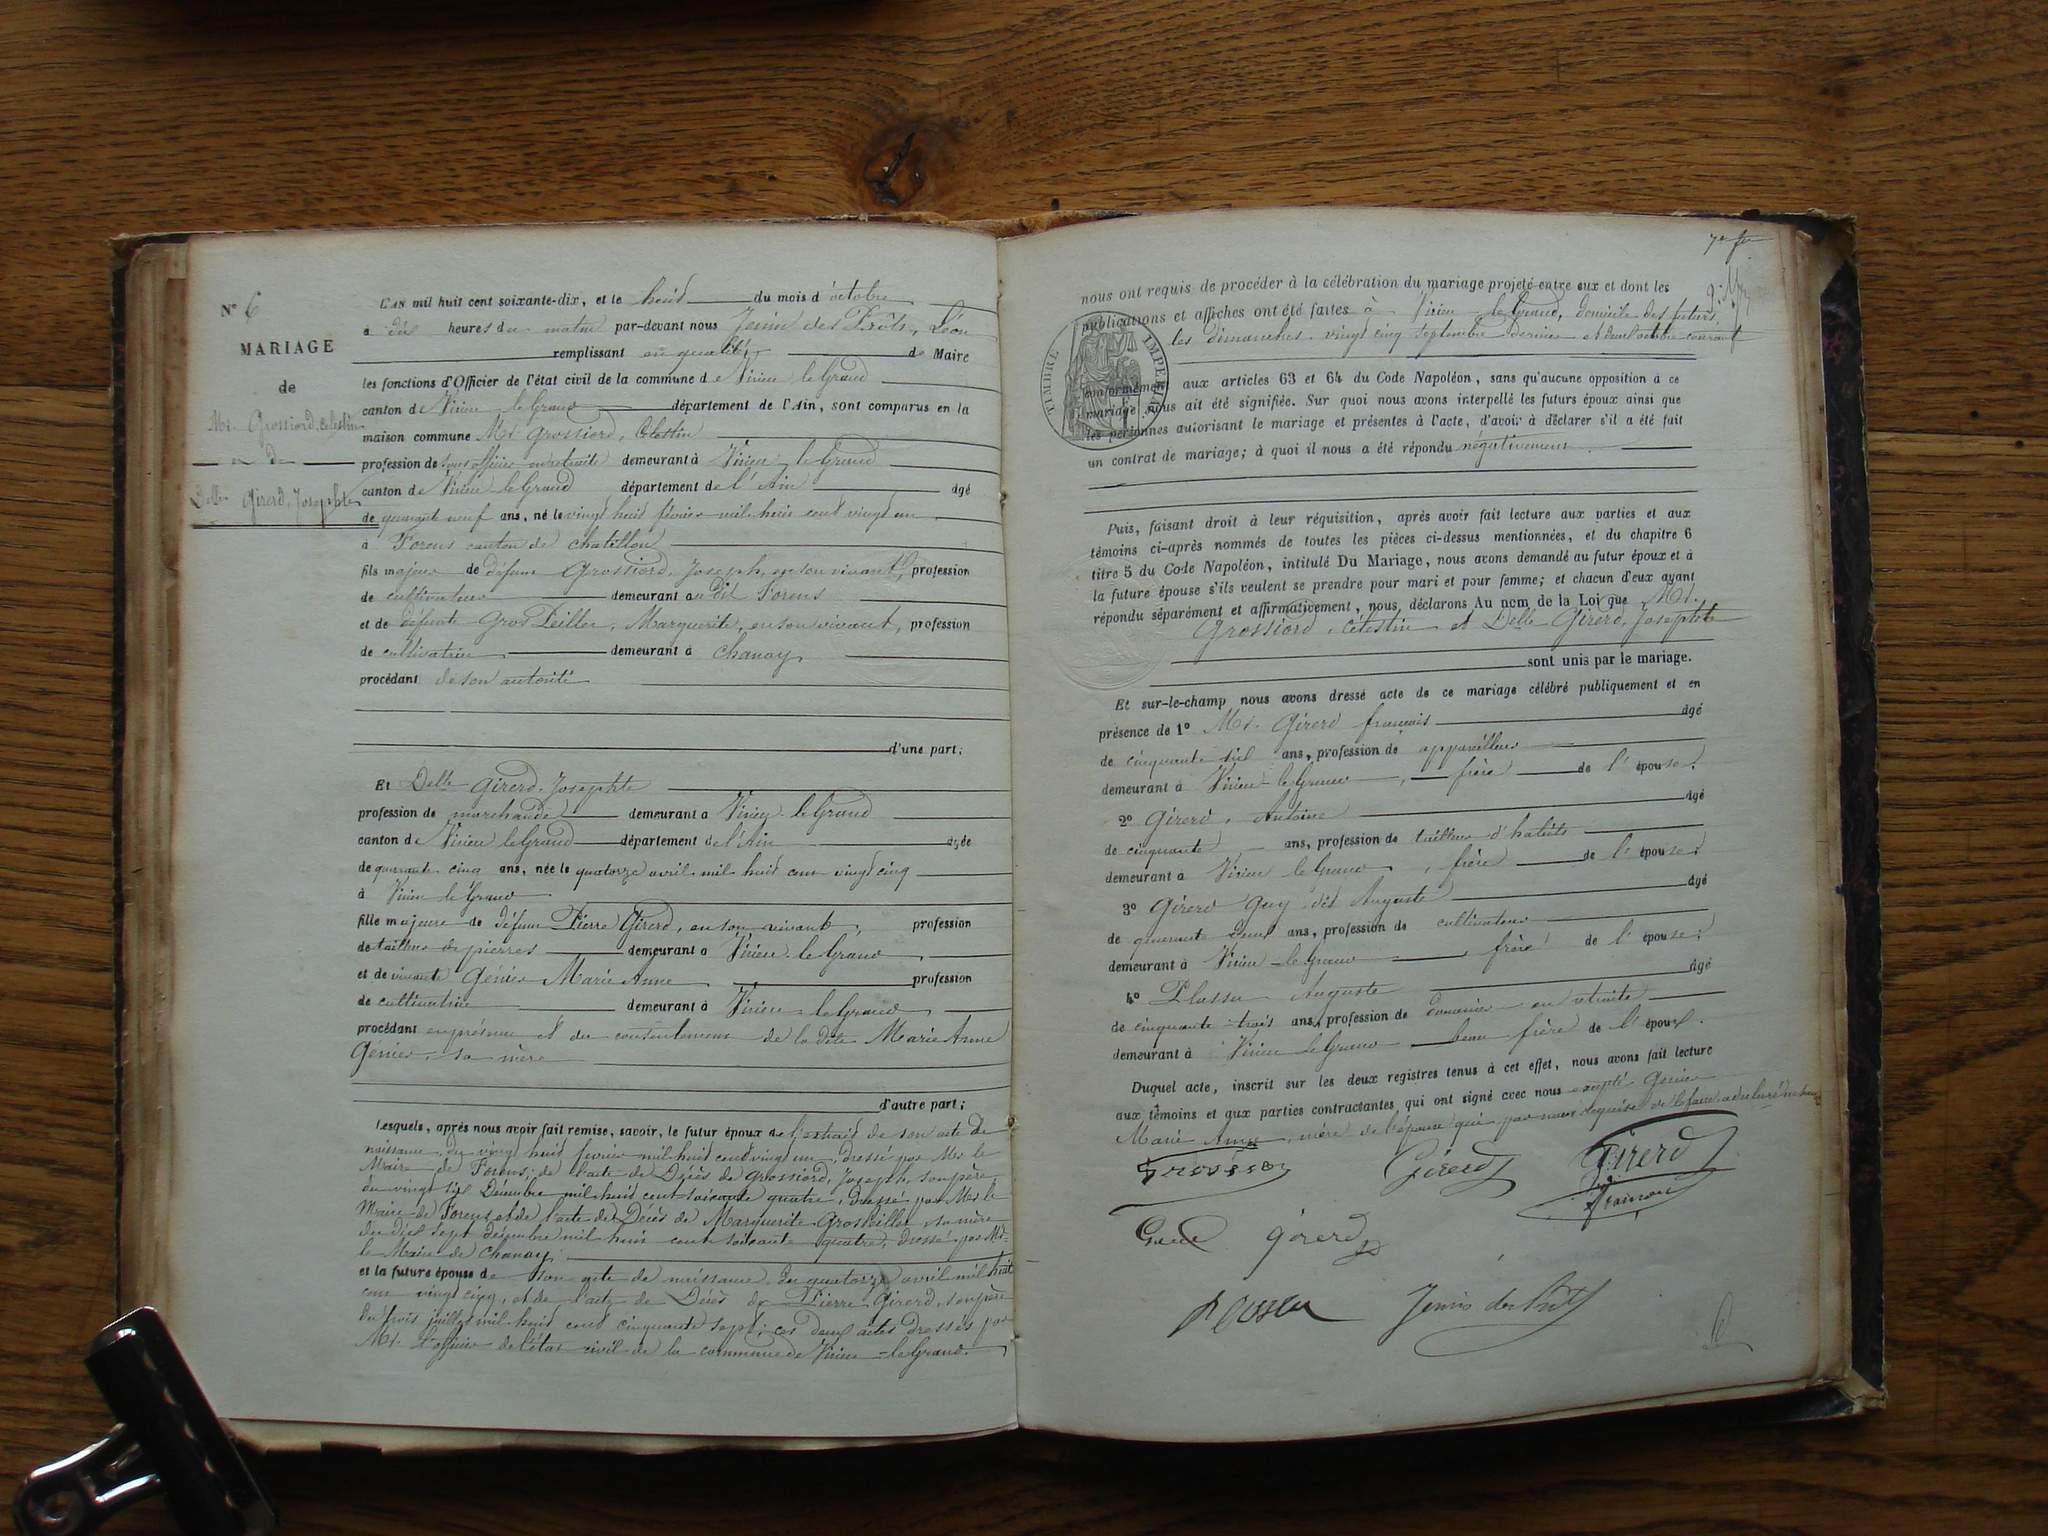 N° 6
MARIAGE
de
Mr. Grossiord, Celestin
et de
Delle Girerd, Josephte
L'AN mil huit cent soixante-dix, et le huit du mois d'octobre
à dix heures du matin par-devant nous Jenin des Prôts, Léon
remplissant en qualité de Maire
les fonctions d'Officier de l'état civil de la commune de Virieu le Grand
canton de Virieu le Grand département de l'Ain, sont comparus en la
maison commune Mr. Grossiord, Célestin
profession de sous officier en retraite demeurant à Virieu le Grand
canton de Virieu le Grand département de l'Ain âgé
de quarante neuf ans, né le vingt huit février mil huit cent vingt un
à Forens canton de Chatillon
fils majeur de défunt Grossiord, Joseph, en son vivant, profession
de cultivateur demeurant au dit Forens
et de défunte Gros Peiller, Marguerite, en son vivant, profession
de cultivatrice demeurant à Chanay,
procédant de son autorité
d'une part;
Et Delle Girerd, Josephte
profession de marchande demeurant à Virieu le Grand
canton de Virieu le Grand département de l'Ain âgée
de quarante cinq ans, née le quatorze avril mil huit cent vingt cinq
à Virieu le Grand
fille majeure de défunt Pierre Girerd, en son vivant, profession
de tailleur de pierres demeurant à Virieu le Grand
et de vivante Génier Marie Anne profession
de cultivatrice demeurant à Virieu le Grand
procédant en présence et du consentement de la dite Marie Anne
Génier, sa mère
d'autre part;
Lesquels, après nous avoir fait remise, savoir, le futur époux de l'extrait de son acte de
naissance, du vingt huit février mil huit cent vingt un, dressé par Mr. le
Maire de Forens; de l'acte de Décès de Grossiord, Joseph, son père,
du vingt six Décembre mil huit cent soixante quatre, dressé par Mr. le
Maire de Forens, et de l'acte de Décès de Marguerite Grospeiller, sa mère
du dix sept décembre mil huit cent soixante quatre, dressé par Mr.
le Maire de Chanay;
et la future épouse de son acte de naissance du quatorze avril mil huit
cent vingt cinq, et de l'acte de Décès de Pierre Girerd, son père
du trois juillet mil huit cent cinquante sept; ces deux actes dressés par
Mr. l'officier de l'état civil de la commune de Virieu-le-Grand.
7e fet
nous ont requis de procéder à la célébration du mariage projeté entre eux et dont les
publications et affiches ont été faites à Virieu le Grand, domicile des futurs,
les dimanches vingt cinq septembre dernier et deux octobre courant
TIMBRE IMPÉRIAL
conformément aux articles 63 et 64 du Code Napoléon, sans qu'aucune opposition à ce
mariage nous ait été signifiée. Sur quoi nous avons interpellé les futurs époux ainsi que
les personnes autorisant le mariage et présentes à l'acte, d'avoir à déclarer s'il a été fait
un contrat de mariage; à quoi il nous a été répondu négativement.
Puis, faisant droit à leur réquisition, après avoir fait lecture aux parties et aux
témoins ci-après nommés de toutes les pièces ci-dessus mentionnées, et du chapitre 6
titre 5 du Code Napoléon, intitulé Du Mariage, nous avons demandé au futur époux et à
la future épouse s'ils veulent se prendre pour mari et pour femme; et chacun d'eux ayant
répondu séparément et affirmativement, nous déclarons Au nom de la Loi que Mr.
Grossiord, Célestin et Delle Girerd, Josephte
sont unis par le mariage.
Et sur-le-champ nous avons dressé acte de ce mariage célébré publiquement et en
présence de 1° Mr. Girerd françois âgé
de cinquante six ans, profession de appareilleur
demeurant à Virieu le Grand, frère de l'épouse;
2° Girerd, Antoine âgé
de cinquante ans, profession de tailleur d'habits
demeurant à Virieu le Grand, frère de l'épouse;
3° Girerd Guy dit Auguste âgé
de quarante deux ans, profession de cultivateur
demeurant à Virieu-le-Grand, frère de l'épouse;
4° Plassu Auguste âgé
de cinquante-trois ans, profession de douanier en retraite
demeurant à Virieu le Grand beau frère de l'époux.
Duquel acte, inscrit sur les deux registres tenus à cet effet, nous avons fait lecture
aux témoins et aux parties contractantes qui ont signé avec nous excepté Genier
Marie Anne, mère de l'épouse qui par nous requise de le faire a déclaré
Girerd
Girerd
Girerd
Jenin des Prôts